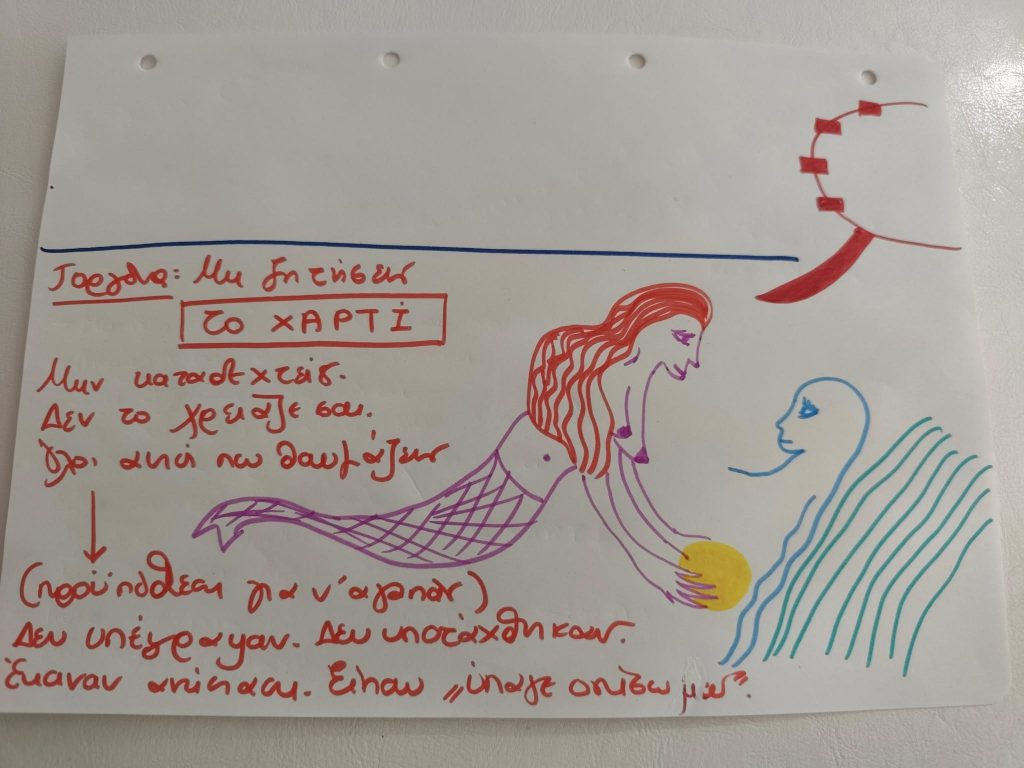 Γοργόνα: Μη ζητήσεις
το ΧΑΡΤΊ
Μην καταδεχτείς.
Δεν το χρειάζεσαι.
Όλοι αυτοί που θαυμάζεις
(προϋπόθεση για ν' αγαπάς)
Δεν υπέγραψαν. Δεν υποτάχθηκαν.
Έκαναν αντίσταση. Είπαν „ύπαγε οπίσω μου”.